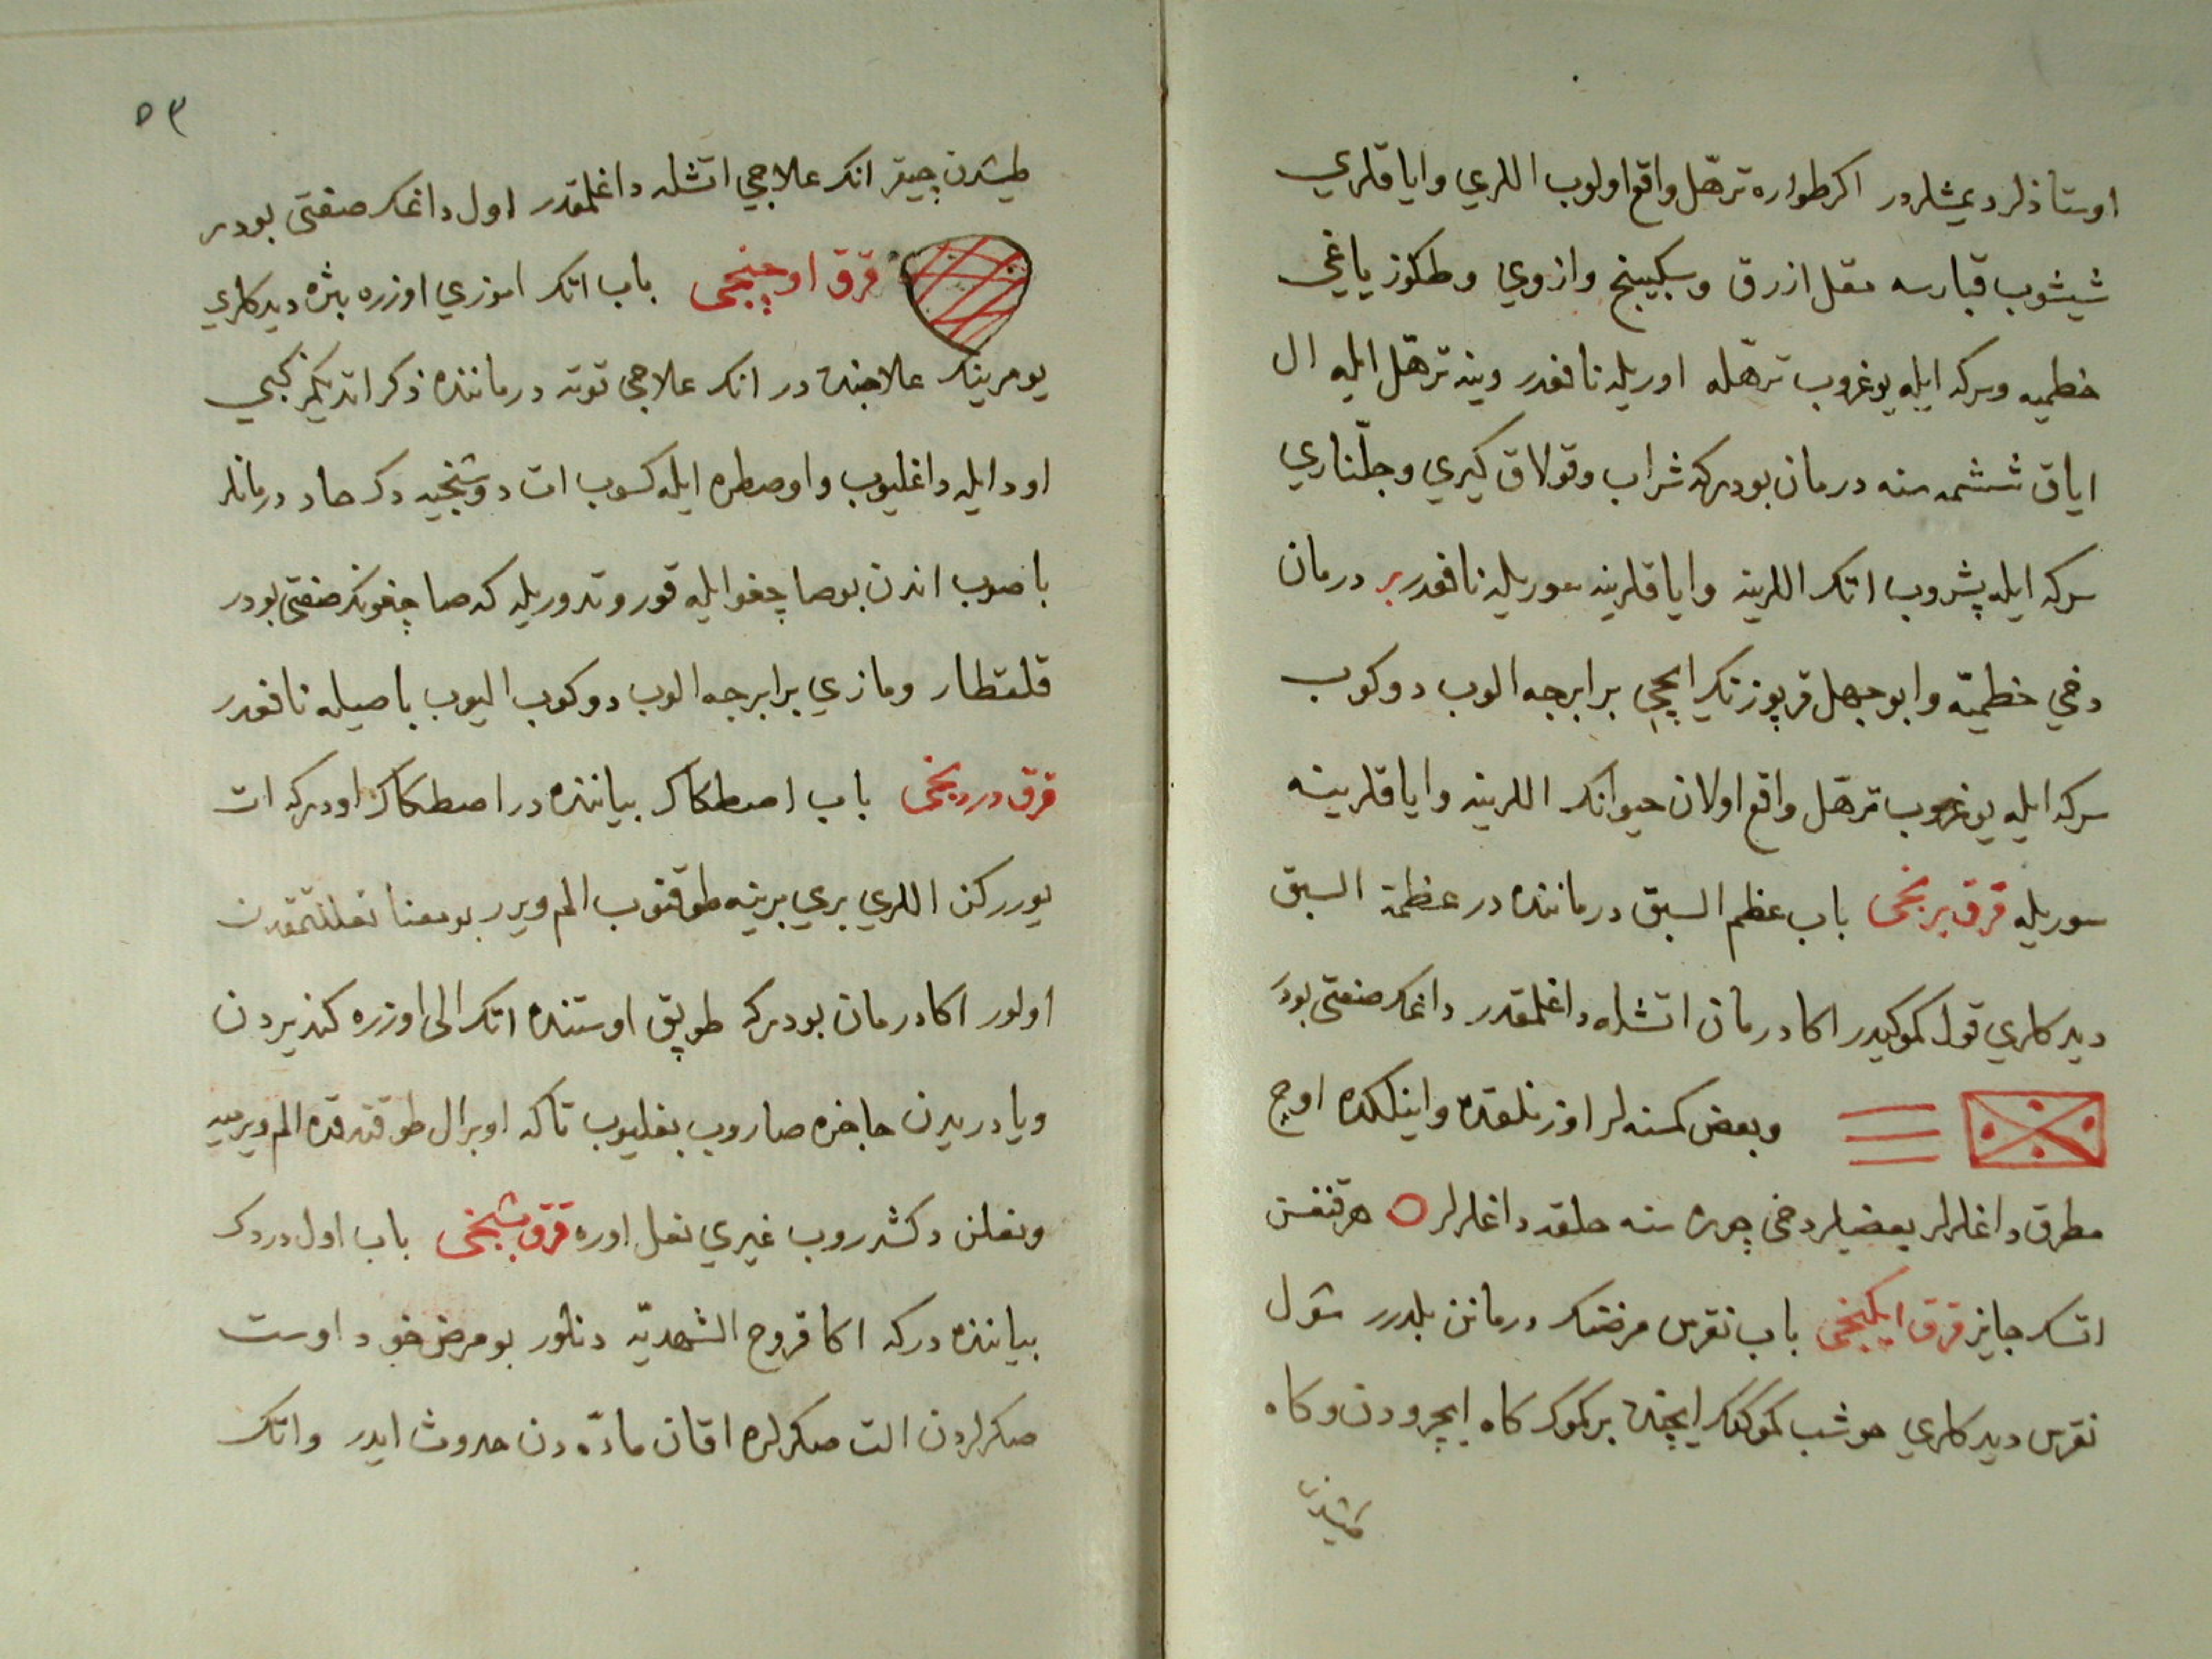 اوستاذلر ديمشلردر اكر طواره ترهّل واقع اولوب اللري واياقلري
شيشوب قبارسه مقل ازرق وسكبينج وازوي وطكوز ياغي
خطميه وسركه ايله يوغروب ترهّله اوريله نافعدر وينه ترهّل ايله ال
اياق ششمه سنه درمان بودركه شراب وقولاق كيري وجلّناري
سركه ايله پشروب اتك اللرينه واياقلرينه سوريله نافعدر بر درمان
دخي خطميّه وابوجهل قرپوزنك ايچي برابرجه الوب دوكوب
سركه ايله يوغروب ترهّل واقع اولان حيوانك اللرينه واياقلرينه
سوريله قرق برنجى باب عظم السبق درماننده در عظمة السبق
ديدكلري قول كموكيدر اكا درمان اتشله داغلمقدر داغك صفتى بودر
وبعض كمسنه لر اوزنلقده واينلكده اوچ
مطرق داغلرلر بعضيلر دخى چوره سنه حلقه داغلرلر هرقنغسن
اتسك جايز قرق ايكنجى باب نقرس مرضنك درمانن بلدرر شول
نقرس ديدكلري حوشب كموككك ايچنده بر كموك كاه ايچرودن وكاه
طيشردن
٥٣
طيشردن چيقر انك علاجي اتشله داغلمقدر اول داغك صفتى بودر
قرق اوچنجى باب اتك اموزي اوزره بثره ديدكلري
يومرينك علاجنده در انك علاجى توته درماننده ذكر اتديكمز كبي
اود ايله داغليوب واوصطره ايله كسوب ات دوشنجيه دك حاد درمانلر
باصوب اندن بو صاچغو ايله قوروتدوريله كه صاچغونك صفتى بودر
قلقطار ومازي برابرجه الوب دوكوب اليوب باصيله نافعدر
قرق دردنجى باب اصطكاك بياننده در اصطكاك اودركه ات
يورركن اللري بري برينه طوقنوب الم ويرر بو معنا نعللنمقدن
اولور اكا درمان بودركه طوپق اوستنده اتك الى اوزره كندردن
ويا دريدن حاخره صاروب بغليوب تاكه اوبر ال طوقندقده الم ويرميه
ونعلن دكشدروب غيري نعل اوره قرق بشنجى باب اول دردك
بياننده دركه اكا قروح الشهديّه دنلور بو مرض خود اوست
صكرلردن الت صكرلره اقان مادّه دن حدوث ايدر واتك